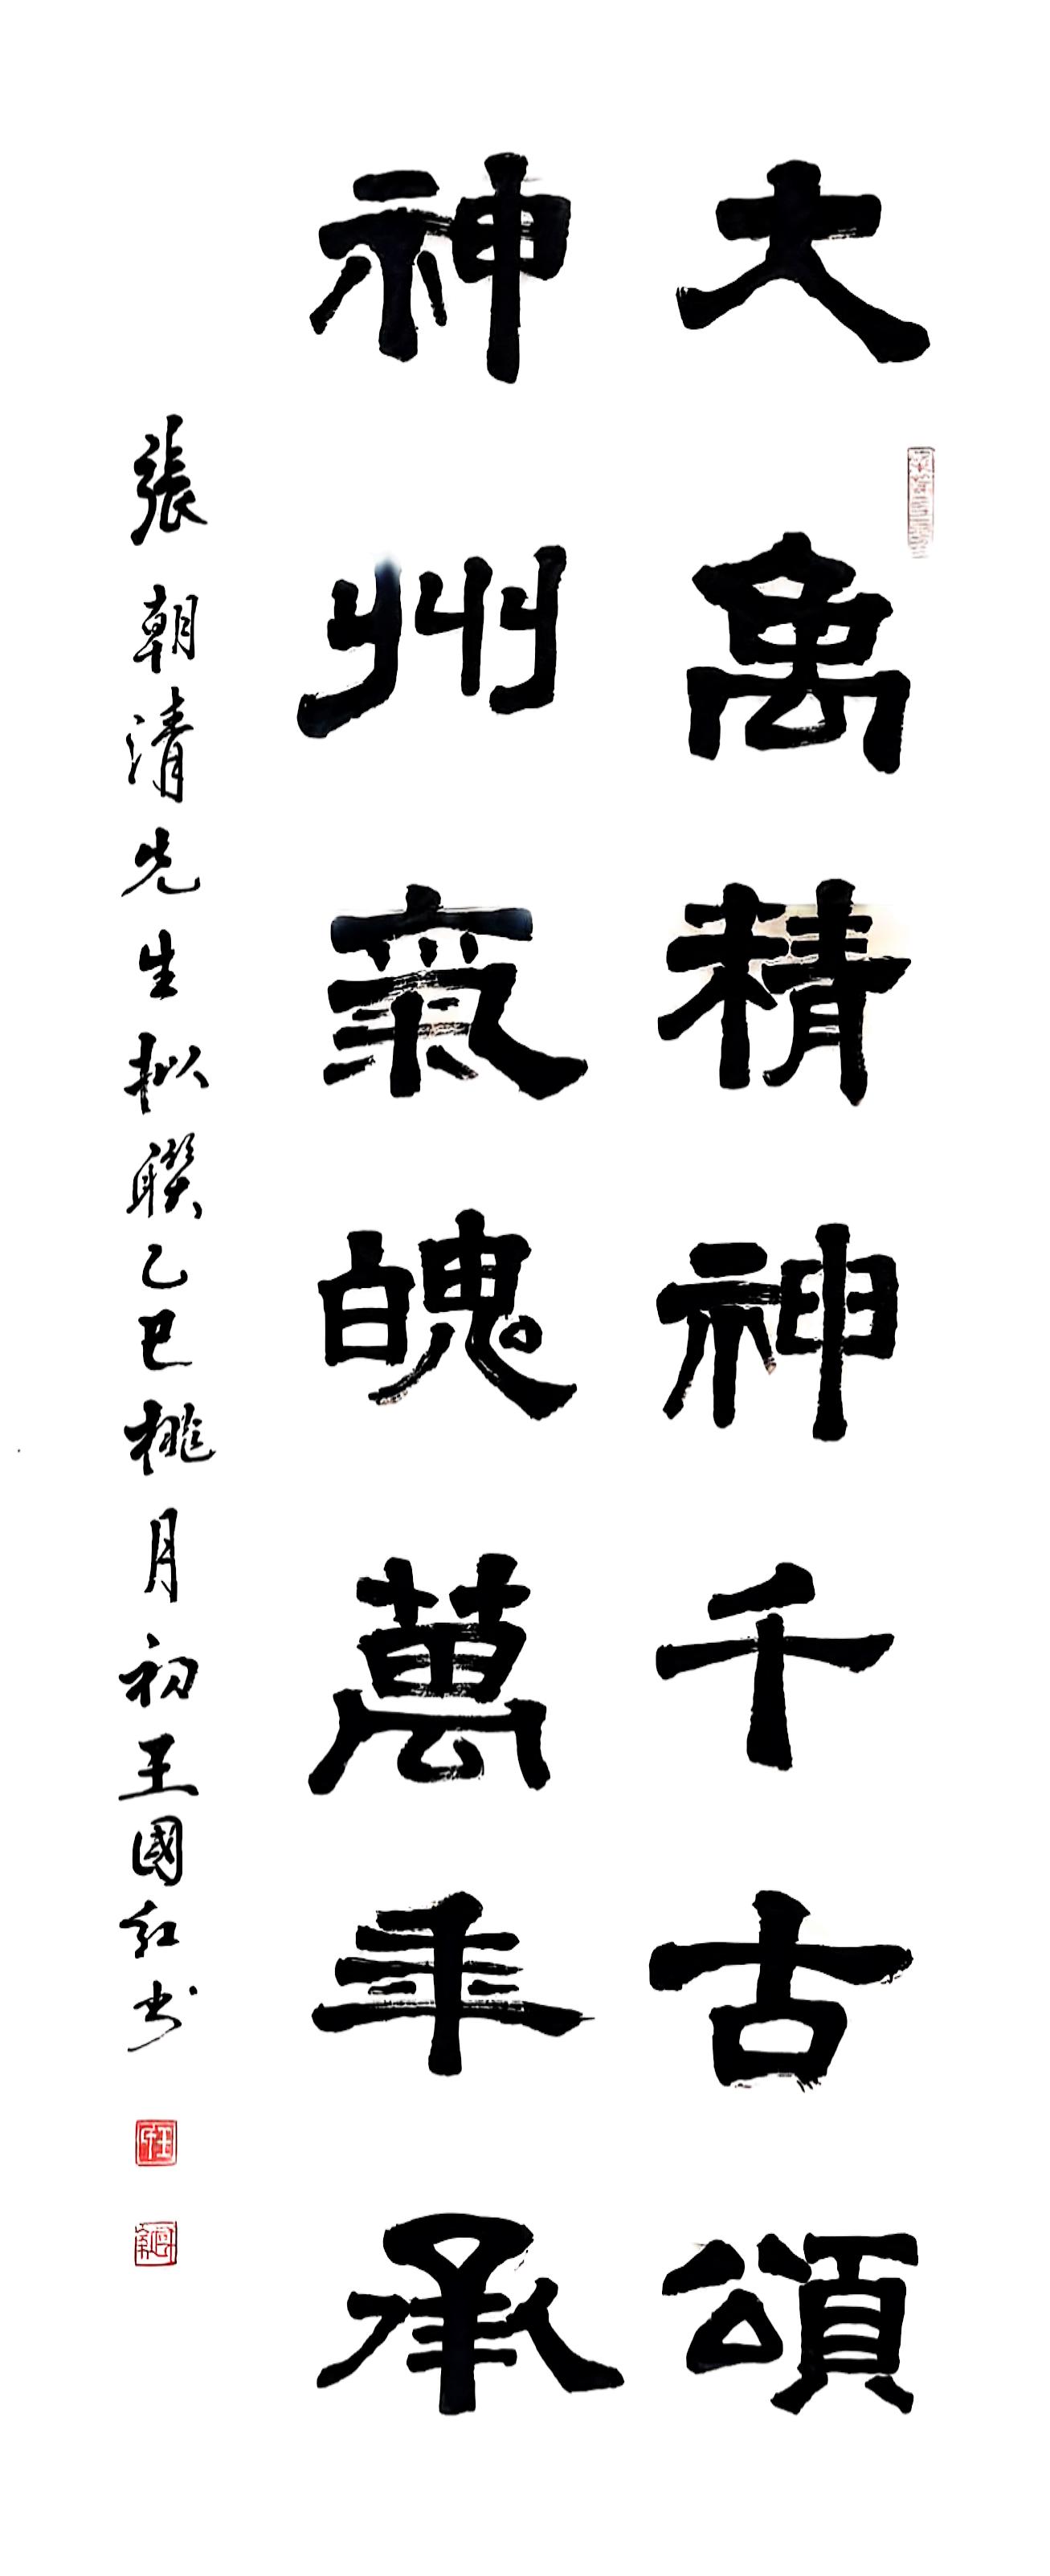 大禹精神千古頌
神州氣魄萬年承
張朝清先生拟聯乙巳桃月初王國红书